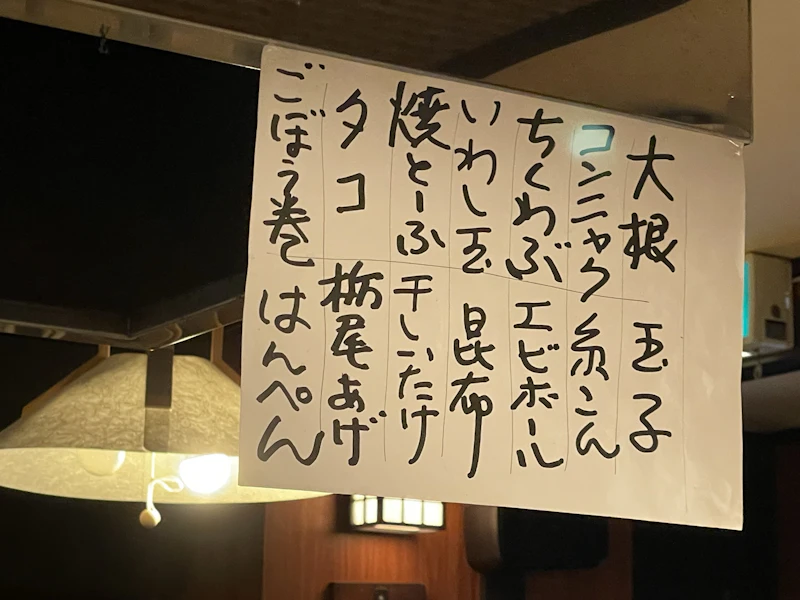 大根 玉子
コンニャク 糸こん
ちくわぶ エビボール
いわし玉 昆布
焼とーふ 干しいたけ
タコ 栃尾あげ
ごぼう巻 はんぺん